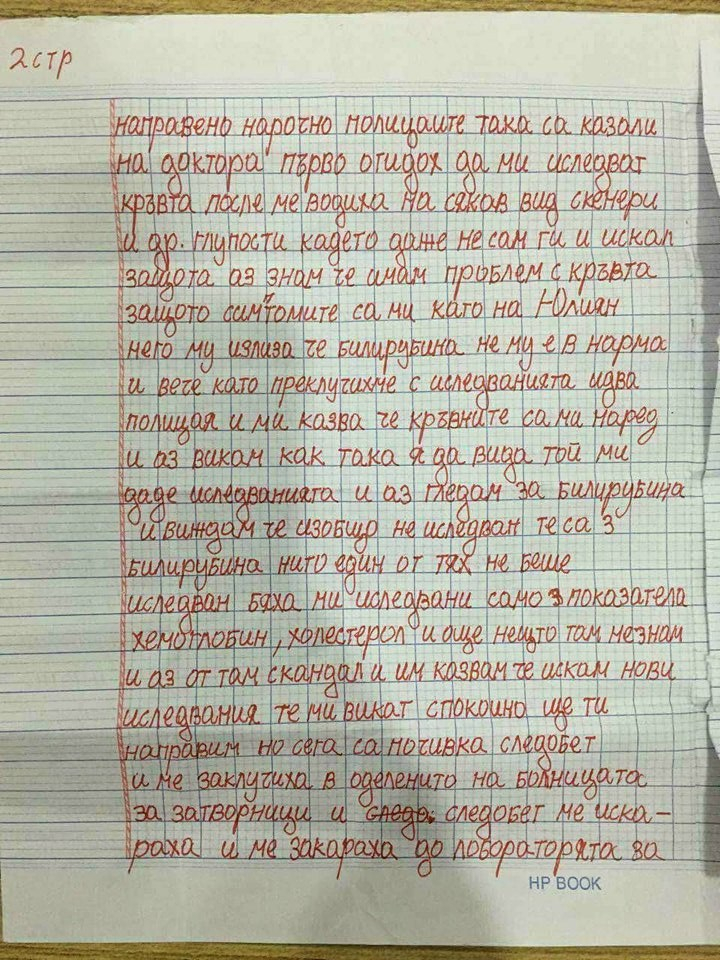 2 стр
направено нарочно полицаите така са казали
на доктора първо отидох да ми иследват
кръвта после ме водиха на сякав вид скенери
и др. глупости кадето даже не сам ги и искал
защота аз знам че имам проблем с кръвта
защото симптомите са ми като на Юлиян
него му излиза че билирубина не му е в нарма
и вече като преклучихме с иследванията идва
полицая и ми казва че кръвните са ми наред
и аз викам как така я да вида той ми
даде иследванията и аз гледам за билирубина
и виждам че изобщо не иследван те са 3
билирубина нито един от тях не беше
иследван бяха ми иследвани само 3 показатела
хемоглобин, холестерол и още нещто там незнам
и аз от там скандал и им казвам че искам нови
иследвания те ми викат спокоино ще ти
направим но сега са почивка следобет
и ме заклучиха в оделенито на болницата
за затворници и следобет ме иска-
раха и ме закараха до лобораторята за
HP BOOK